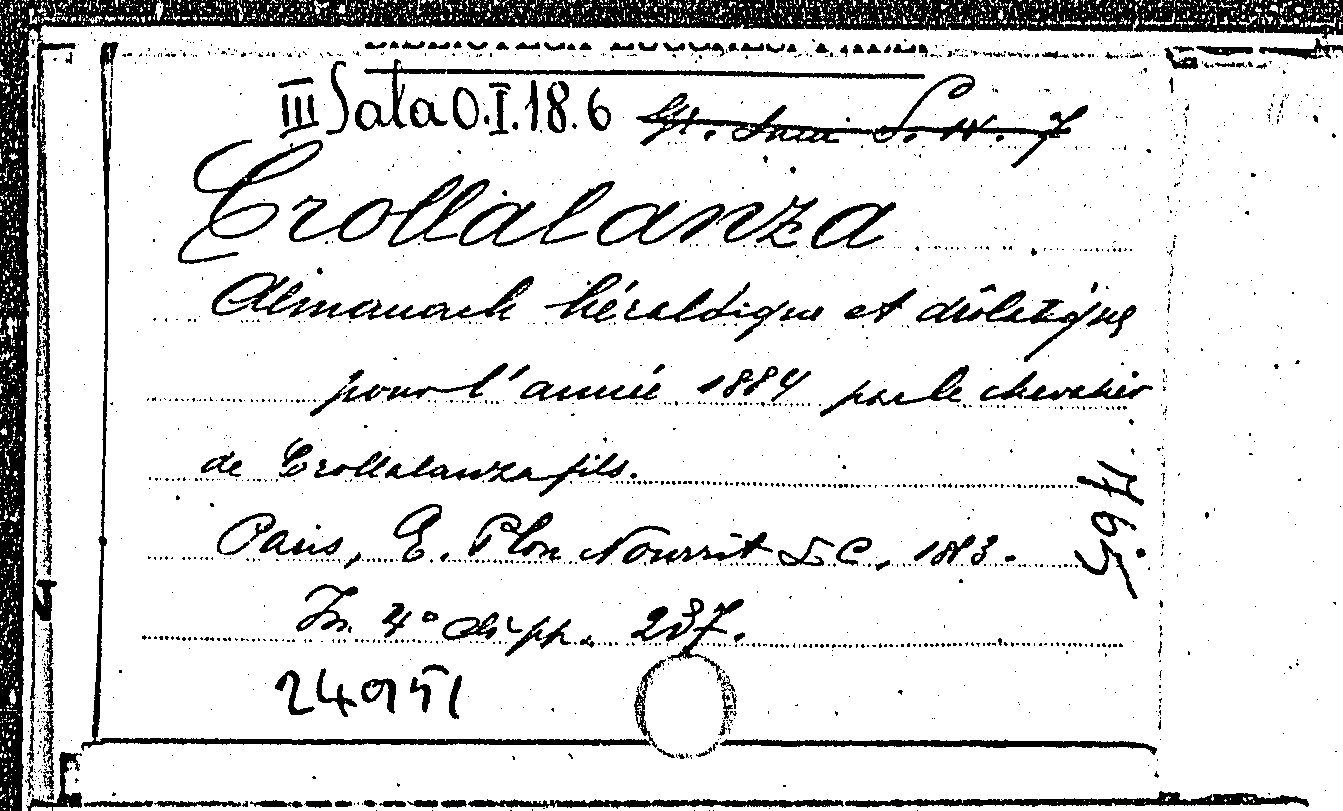 III Sala O.I.18.6 S. IV. 7
Crollalanza
Almanach héraldique et drôlatique
pour l'année 1884 par le chevalier
de Crollalanza fils.
Paris, E. Plon Nourrit & C., 1883.
In 4° di pp. 237.
24951
765